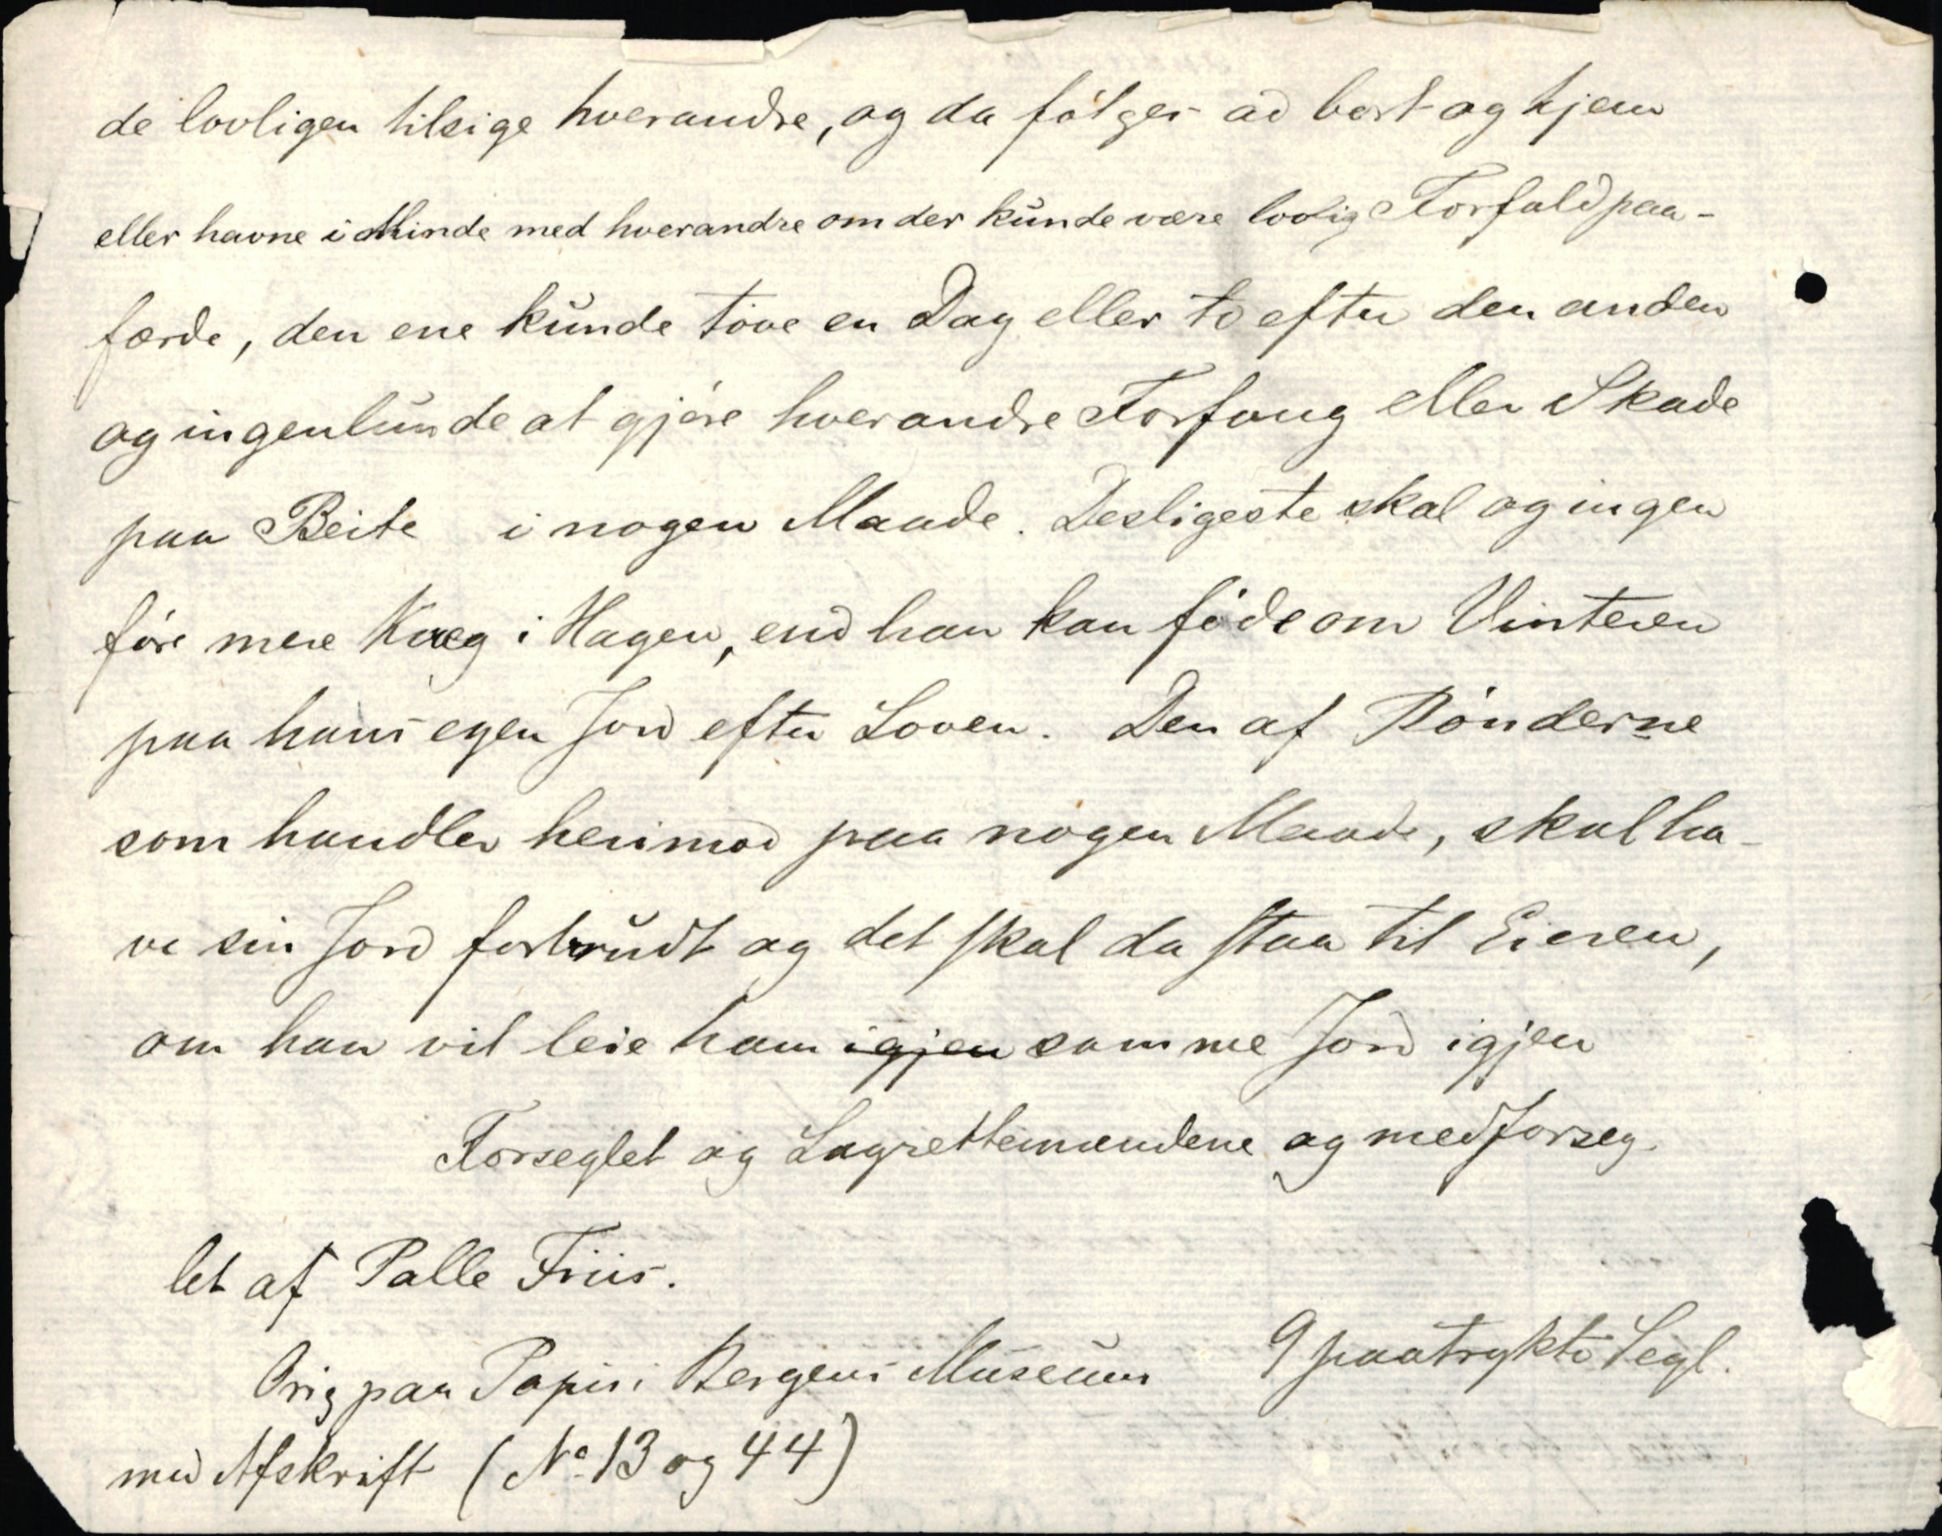 de lovligen tilsige hverandre, og da følges ad bort og hjem
eller havne i Minde med hverandre om der kunde være lovlig Forfald paa-
færde, den ene kunde tøve en Dag eller to efter den anden
og ingenlunde at gjøre hverandre Forfang eller Skade
paa Beite i nogen Maade. Desligeste skal og ingen
føre mere Kvæg i Hagen, end han kan føde om Vinteren
paa hans egen Jord efter Loven. Den af Bønderne
som handler herimod paa nogen Maade, skal ha-
ve sin Jord forbrudt og det skal da staa til Eieren,
om han vil leie ham igjen samme Jord igjen
Forseglet og Lagrettemændene og medforseg-
let af Palle Friis.
Orig paa Papir i Bergens Museum 9 paatrykte Segl.
med Afskrift (No 13 og 44)